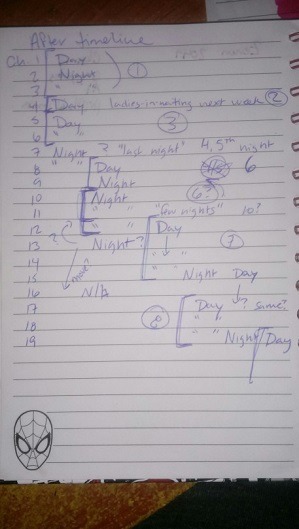 After timeline
Ch. 1 Day
2 Night ①
3 " "
4 Day ladies-in-waiting next week ②
5 Day
6 " " ③
7 Night ? "last night" 4, 5th night
8 " " Day 6
9 Night
10 Night 6?
11 " " "few nights" 10?
12 " " Day
13 ? Night?
14 ⑦
15 " " Night Day
16 N/A
17 Day ? same?
18 ⑧ " "
19 " " Night/Day